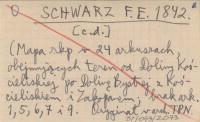 SCHWARZ F. E. 1842.
[c.d.]
(Mapa rkp w 24 arkuszach,
obejmujących teren od Doliny Koś-
cieliskiej po Dolinę Bystrej z Koś-
cieliskiem i Zakopanem; brak ark.
1, 5, 6, 7 i 9. Oryginał w arch. TPN.